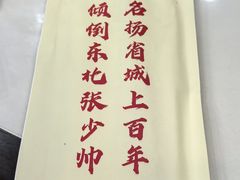 名扬省城上百年
倾倒东北张少帅